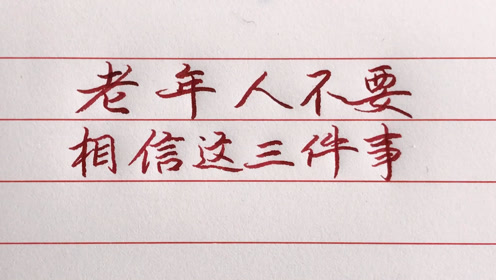 老年人不要
相信这三件事